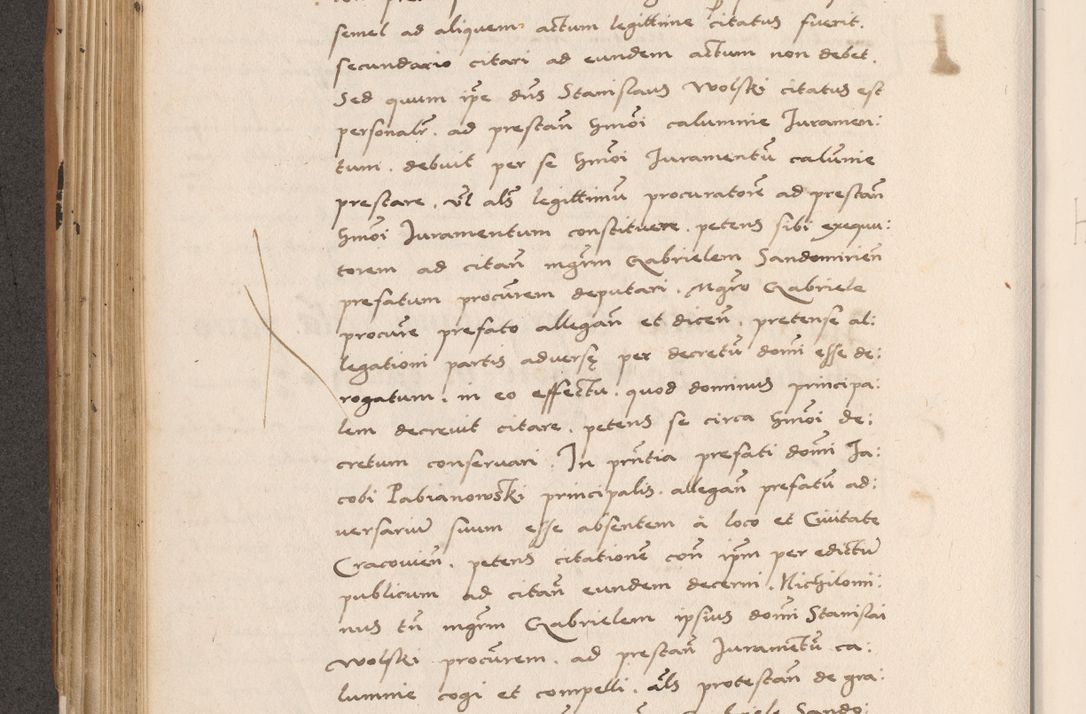 semel ad aliquem actum legittime citatus fuerit.
secundario citari ad eundem actum non debet.
Sed quum ip̄e dn̄s Stanislaus Wolski citatus est
personalr̄. ad prestan̄ hmōi calumnie Iuramen:
tum. debuit per se hmōi Iuramentū calūnie
prestare. vl̄ als̄ legittimū procuratorē ad prestan̄
hmōi Iuramentum constituere. petens sibi exequu:
torem ad citan̄ mgr̄m Gabrielem Sandomirien̄
prefatum procūrem deputari. Mgr̄o Gabriele
procūre prefato allegan̄ et dicen̄. pretense al:
legationi partis adversę per decretū domī esse de:
rogatum. in eo effectu. quod dominus principa:
lem decrevit citare. petens se circa hmōi de:
cretum conservari. In pn̄tia prefati domī Ia:
cobi Pabianowski principalis. allegan̄ prefatū ad:
versariū suum esse absentem à loco et Civitate
Cracovien̄. petens citationē con̄ ip̄m per edictū
publicum ad citan̄ eundem decerni. Nichilomi:
nus tn̄ mgr̄m Gabrielem ipsius domī Stanislai
Wolski procūrem. ad prestan̄ Iuramētū ca:
lumnie cogi et compelli. als̄ protestan̄ de gra: